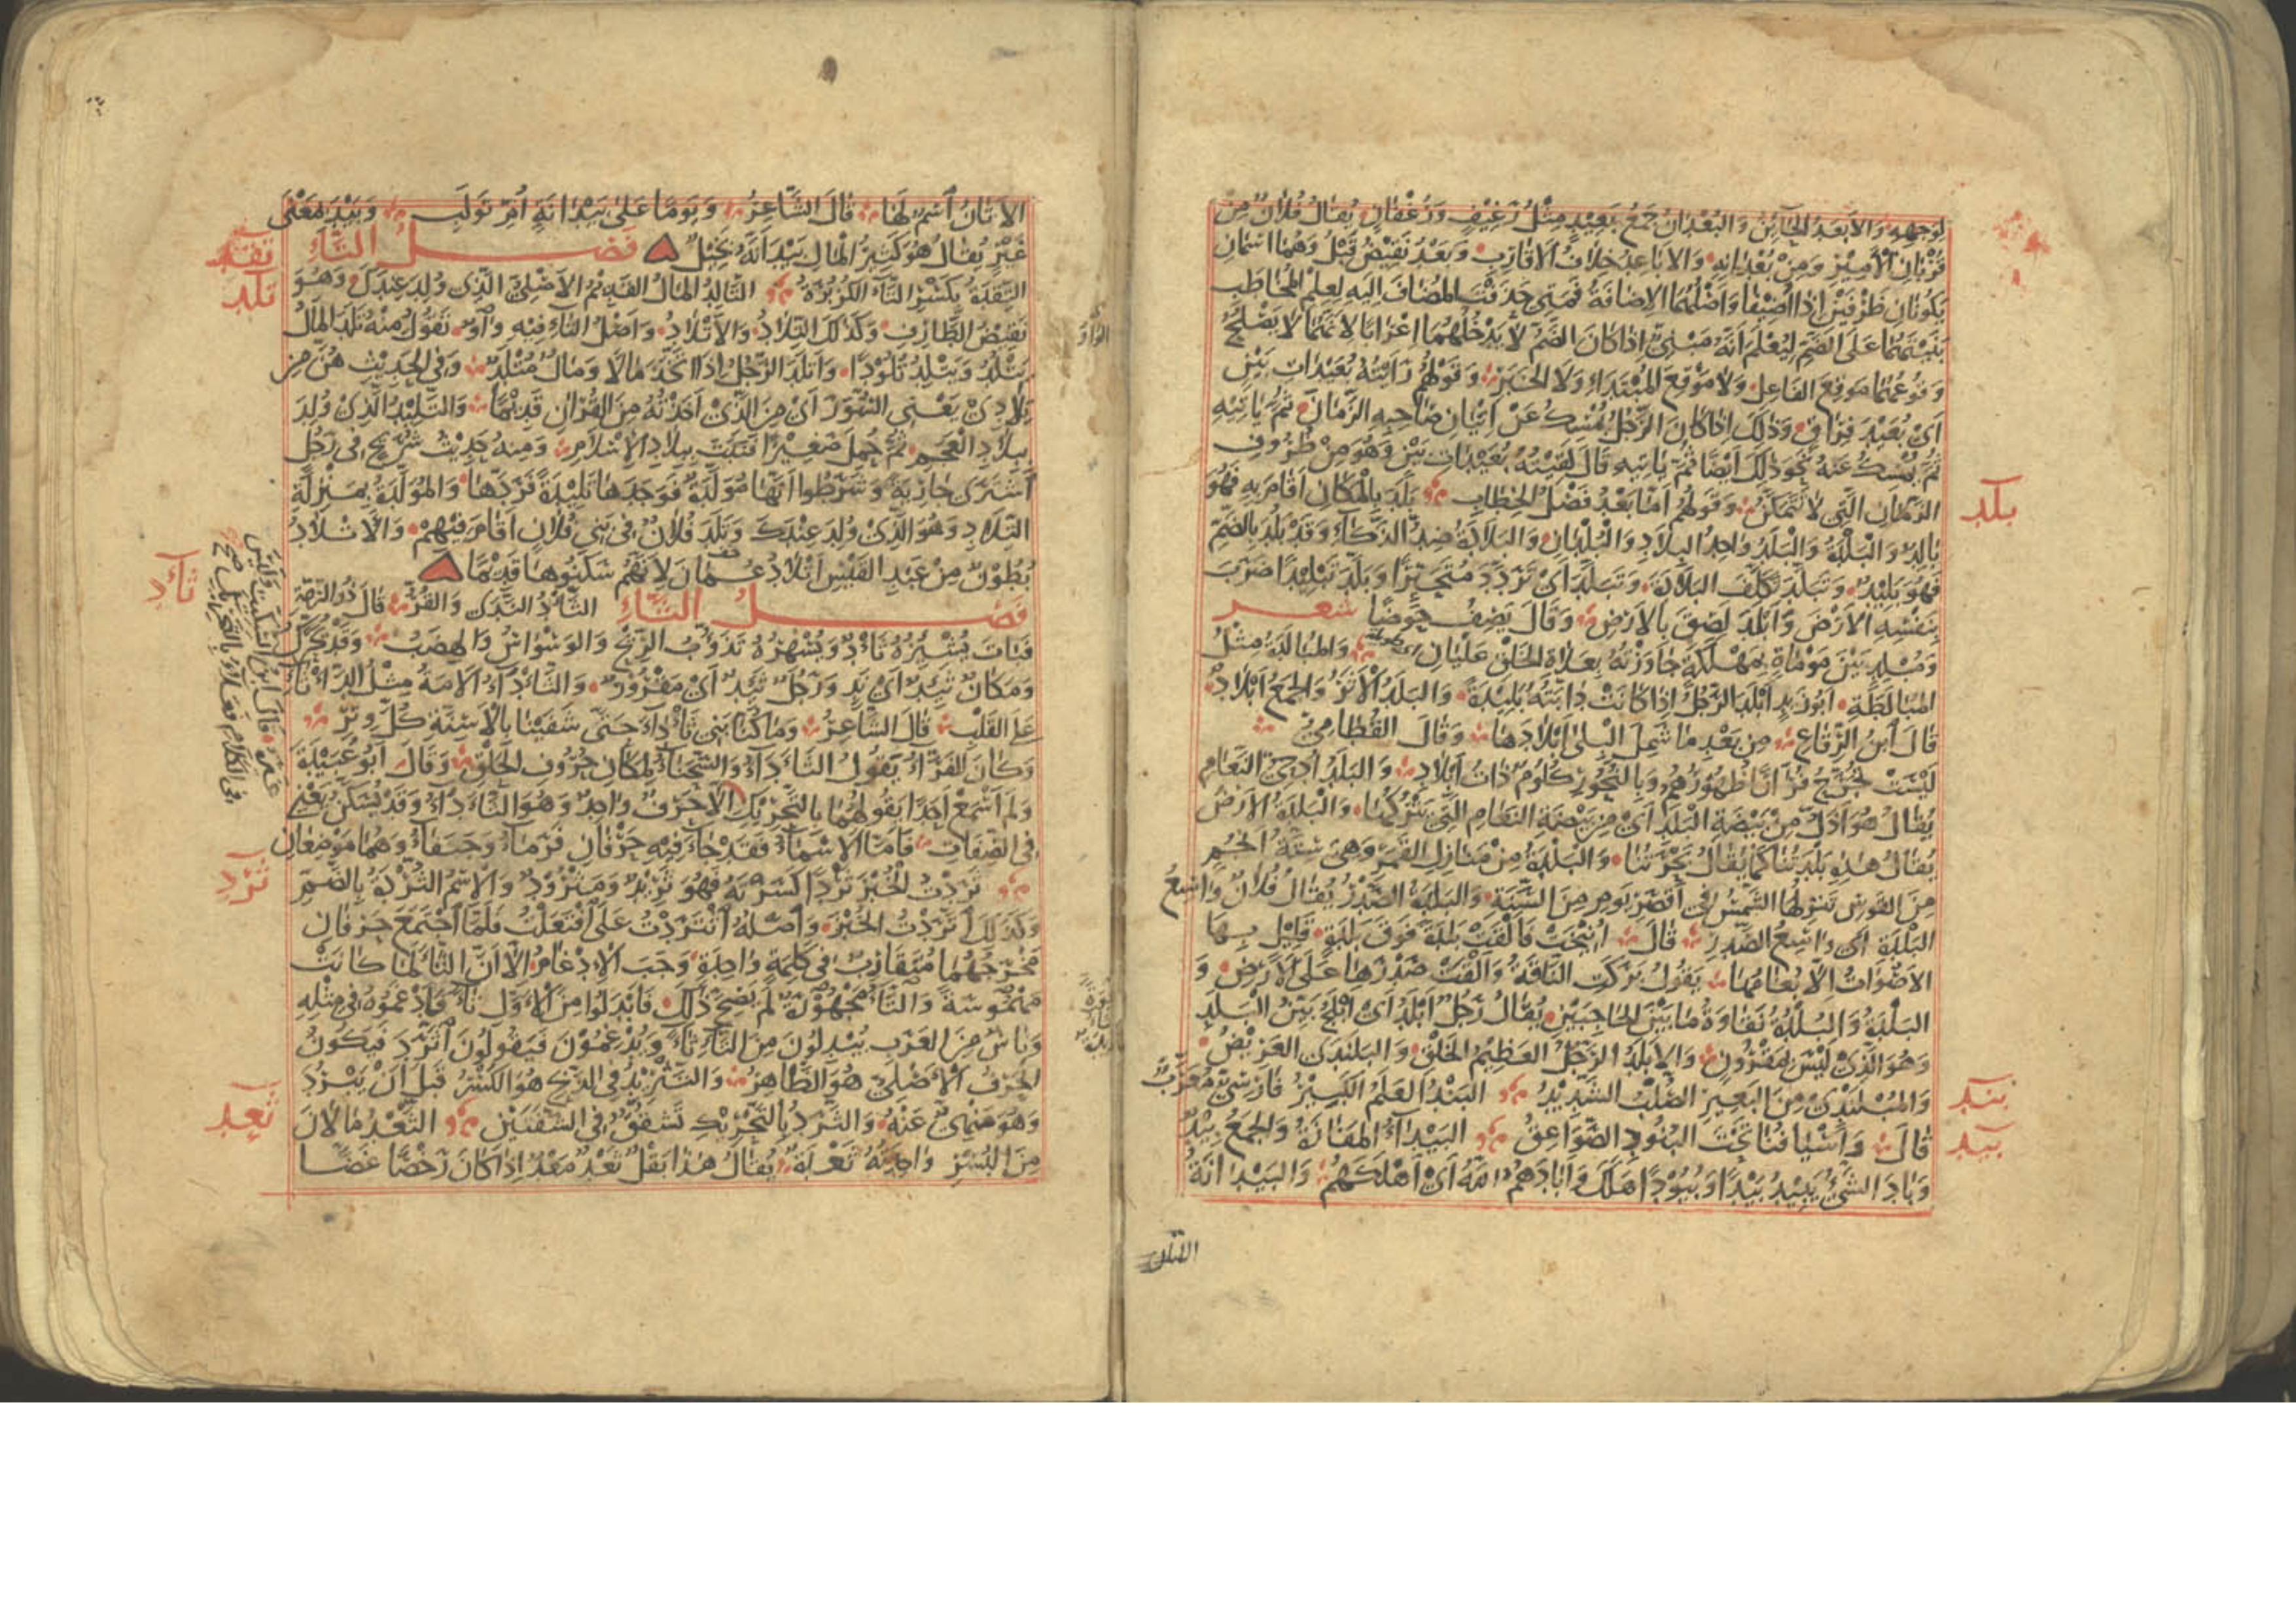 لوجهه والابعد الخائن والبعدان جمع بعيد مثل رغيف ورغفان يقال فلان من
قربان الأمير ومن بعدانه والاباعد خلاف الاقارب وبعد نقيض قبل وهما اسمان
يكونان ظرفين اذا اضيفا واصلهما الاضافة فمتى حذفت المضاف اليه لعلم المخاطب
بنيتهما على الضم ليعلم انه مبني اذا كان الضم لا يدخلهما اعرابا لانهما لا يصلح
وقوعهما موقع الفاعل ولا موقع المبتدا ولا الخبر وقولهم رايته بعيدات بين
اي بعيد فراق وذلك اذا كان الرجل يمسك عن اتيان صاحبه الزمان ثم ياتيه
ثم يمسك عنه نحو ذلك ايضا ثم ياتيه قال لقيته بعيدات بين وهو من ظروف
الزمان التي لا تتمكن وقولهم اما بعد فصل الخطاب بلد بالمكان اقام به فهو
بلد
بالد والبلدة والبلد واحد البلاد والبلدان والبلادة ضد الذكاء وقد بلد بالضم
فهو بليد وتبلد تكلف البلادة وتبلد اي تردد متحيرا وبلد تبليدا ضرب
بنفسه الارض وابلد لصق بالارض وقال يصف حوضا شعر
ومبلد بين موماة بمهلكة جاوزته بعلاة الخلق عليان والمبالدة مثل
المبالطة ابو زيد ابلد الرجل اذا كانت دابته بليدة والبلد الاثر والجمع ابلاد
قال ابن الرقاع من بعد ما شمل البلى ابلادها وقال القطامي
ليست تجرح فرارا ظهورهم وبالنحور كلوم ذات ابلاد والبلد ادحي النعام
يقال هو اذل من بيضة البلد اي من بيضة النعام التي يتركها والبلدة الارض
يقال هذه بلدتنا كما يقال بحرتنا والبلدة من منازل القمر وهي ستة انجم
من القوس تنزلها الشمس في اقصر يوم من السنة والبلدة الصدر يقال فلان واسع
البلدة اي واسع الصدر قال انيخت فالقت بلدة فوق بلدة قليل بها
الاصوات الا بغامها يقول بركت الناقة والقت صدرها على الارض و
البلدة والبلدة نقاوة ما بين الحاجبين يقال رجل ابلد اي ابلج بين البلد
وهو الذي ليس بمقرون والابلد الرجل العظيم الخلق والبلندى العريض
والمبلندي من البعير الصلب الشديد البند العلم الكبير فارسي معرب
بند
قال واسيافنا تحت البنود الصواعق البيداء المفازة والجمع بيد
بيد
وباد الشئ يبيد بيدا وبيودا هلك وابادهم الله اي اهلكهم والبيدانة
الاتان
الاتان اسم لها قال الشاعر ويوما على بيدانة ام تولب وبيد بمعنى
غير يقال هو كثير المال بيد انه بخيل فصل التاء
تقد
التقدة بكسر التاء الكزبرة التالد المال القديم الاصلي الذي ولد عندك وهو
تلد
نقيض الطارف وكذلك التلاد والاتلاد واصل التاء فيه واو تقول منه تلد المال
يتلد ويتلد تلودا واتلد الرجل اذا اتخذ مالا ومال متلد وفي الحديث هن من
تلادي يعني السور اي من الذي اخذته من القران قديما والتليد الذي ولد
ببلاد العجم ثم حمل صغيرا فنبت ببلاد الاسلام ومنه حديث شريح في رجل
اشترى جارية وشرطوا انها مولدة فوجدها تليدة فردها والمولدة بمنزلة
التلاد وهو الذي ولد عندك وتلد فلان في بني فلان اقام فيهم والاتلاد
بطون من عبد القيس اتلاد عمان لانهم سكنوها قديما
فصل الثاء الثأد الندى والقر قال ذو الرمة
ثأد
فبات يشئزه ثأد ويسهره تذؤب الريح والوسواس والهضب وقد يحرك
ومكان ثئد اي ند ورجل ثئد اي مقرور والثأداء الامة مثل الدأثاء
على القلب قال الشاعر وما كنا بني ثأداء حتى شفينا بالاسنة كل وتر
وكان الفراء يقول الثأداء والسحناء لمكان حروف الحلق وقال ابو عبيدة
ولم اسمع احدا يقولهما بالتحريك الا حرف واحد وهو الثأداء وقد يسكن يعني
في الصفات فاما الاسماء فقد جاء فيه حرفان قرماء وجنفاء وهما موضعان
ثردت الخبز ثردا كسرته فهو ثريد ومثرود والاسم الثردة بالضم
ثرد
وكذلك اثردت الخبز واصله اثتردت على افتعلت فلما اجتمع حرفان
مخرجهما متقارب في كلمة واحدة وجب الادغام الا ان الثاء لما كانت
مهموسة والتاء مجهورة لم يصح ذلك فابدلوا من الاول تاء فادغموه في مثله
وناس من العرب يبدلون من التاء ثاء ويدغمون فيقولون اثرد فيكون
الحرف الاصلي هو الظاهر والتثريد في الذبح هو الكسر قبل ان يبرد
وهو منهي عنه والثرد بالتحريك تشقق في الشفتين الثعد ما لان
ثعد
من البسر واحدته ثعدة يقال هذا بقل ثعد معد اذا كان رخصا غضا